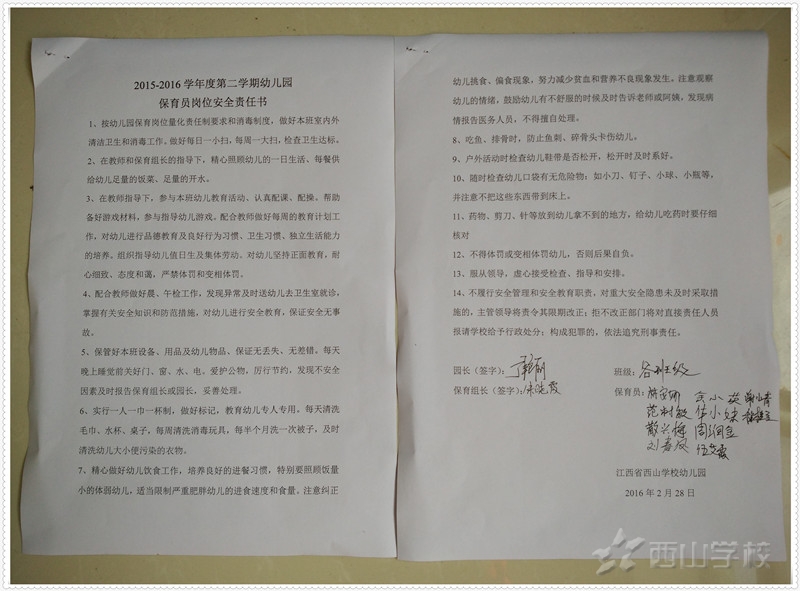 2015-2016 学年度第二学期幼儿园
保育员岗位安全责任书
1、按幼儿园保育岗位量化责任制要求和消毒制度，做好本班室内外
清洁卫生和消毒工作。做好每日一小扫，每周一大扫，检查卫生达标。
2、在教师和保育组长的指导下，精心照顾幼儿的一日生活、每餐供
给幼儿足量的饭菜、足量的开水。
3、在教师指导下，参与本班幼儿教育活动、认真配课、配操。帮助
备好游戏材料，参与指导幼儿游戏。配合教师做好每周的教育计划工
作，对幼儿进行品德教育及良好行为习惯、卫生习惯、独立生活能力
的培养。组织指导幼儿值日生及集体劳动。对幼儿坚持正面教育，耐
心细致、态度和蔼，严禁体罚和变相体罚。
4、配合教师做好晨、午检工作，发现异常及时送幼儿去卫生室就诊，
掌握有关安全知识和防范措施，对幼儿进行安全教育，保证安全无事
故。
5、保管好本班设备、用品及幼儿物品、保证无丢失、无差错。每天
晚上睡觉前关好门、窗、水、电。爱护公物，厉行节约，发现不安全
因素及时报告保育组长或园长，妥善处理。
6、实行一人一巾一杯制，做好标记，教育幼儿专人专用，每天清洗
毛巾、水杯、桌子，每周清洗消毒玩具，每半个月洗一次被子，及时
清洗幼儿大小便污染的衣物。
7、精心做好幼儿饮食工作，培养良好的进餐习惯，特别要照顾饭量
小的体弱幼儿，适当限制严重肥胖幼儿的进食速度和食量，注意纠正
幼儿挑食、偏食现象，努力减少贫血和营养不良现象发生。注意观察
幼儿的情绪，鼓励幼儿有不舒服的时候及时告诉老师或阿姨，发现病
情报告医务人员，不得擅自处理。
8、吃鱼、排骨时，防止鱼刺、碎骨头卡伤幼儿。
9、户外活动时检查幼儿鞋带是否松开，松开时及时系好。
10、随时检查幼儿口袋有无危险物：如小刀、钉子、小球、小瓶等，
并注意不把这些东西带到床上。
11、药物、剪刀、针等放到幼儿拿不到的地方，给幼儿吃药时要仔细
核对
12、不得体罚或变相体罚幼儿，否则后果自负。
13、服从领导，虚心接受检查、指导和安排。
14、不履行安全管理和安全教育职责，对重大安全隐患未及时采取措
施的，主管领导将责令其限期改正；拒不改正部门将对直接责任人员
报请学校给予行政处分；构成犯罪的，依法追究刑事责任。
园长（签字）： 班级：各班级
保育组长（签字）：朱晓霞 保育员：
江西省西山学校幼儿园
2016 年 2 月 28 日
西山学校